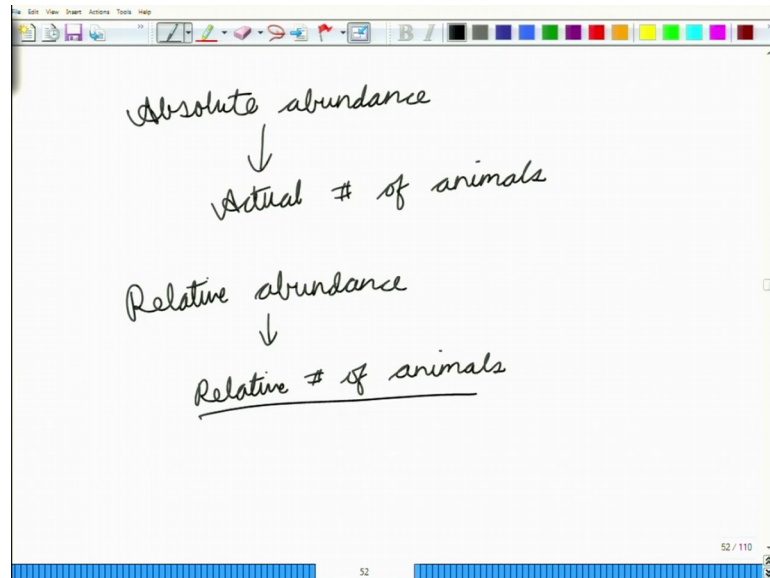 File Edit View Insert Actions Tools Help
B I
Absolute abundance
↓
Actual # of animals
Relative abundance
↓
Relative # of animals
52 / 110
52